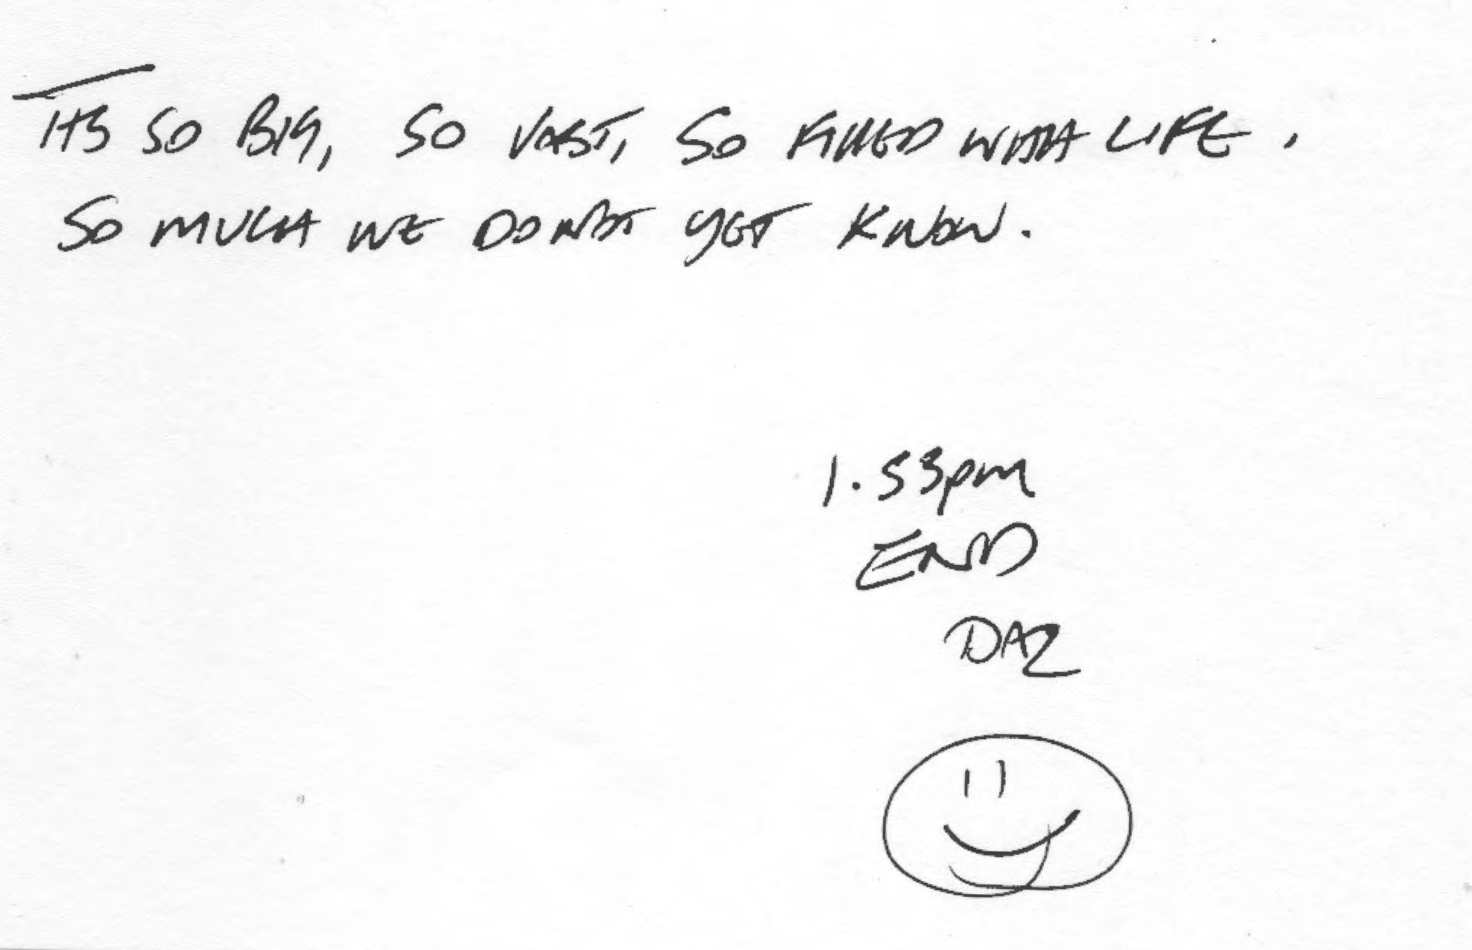 ITS SO BIG, SO VAST, SO FILLED WITH LIFE,
SO MUCH WE DO NOT YET KNOW.
1.53pm
END
DAZ